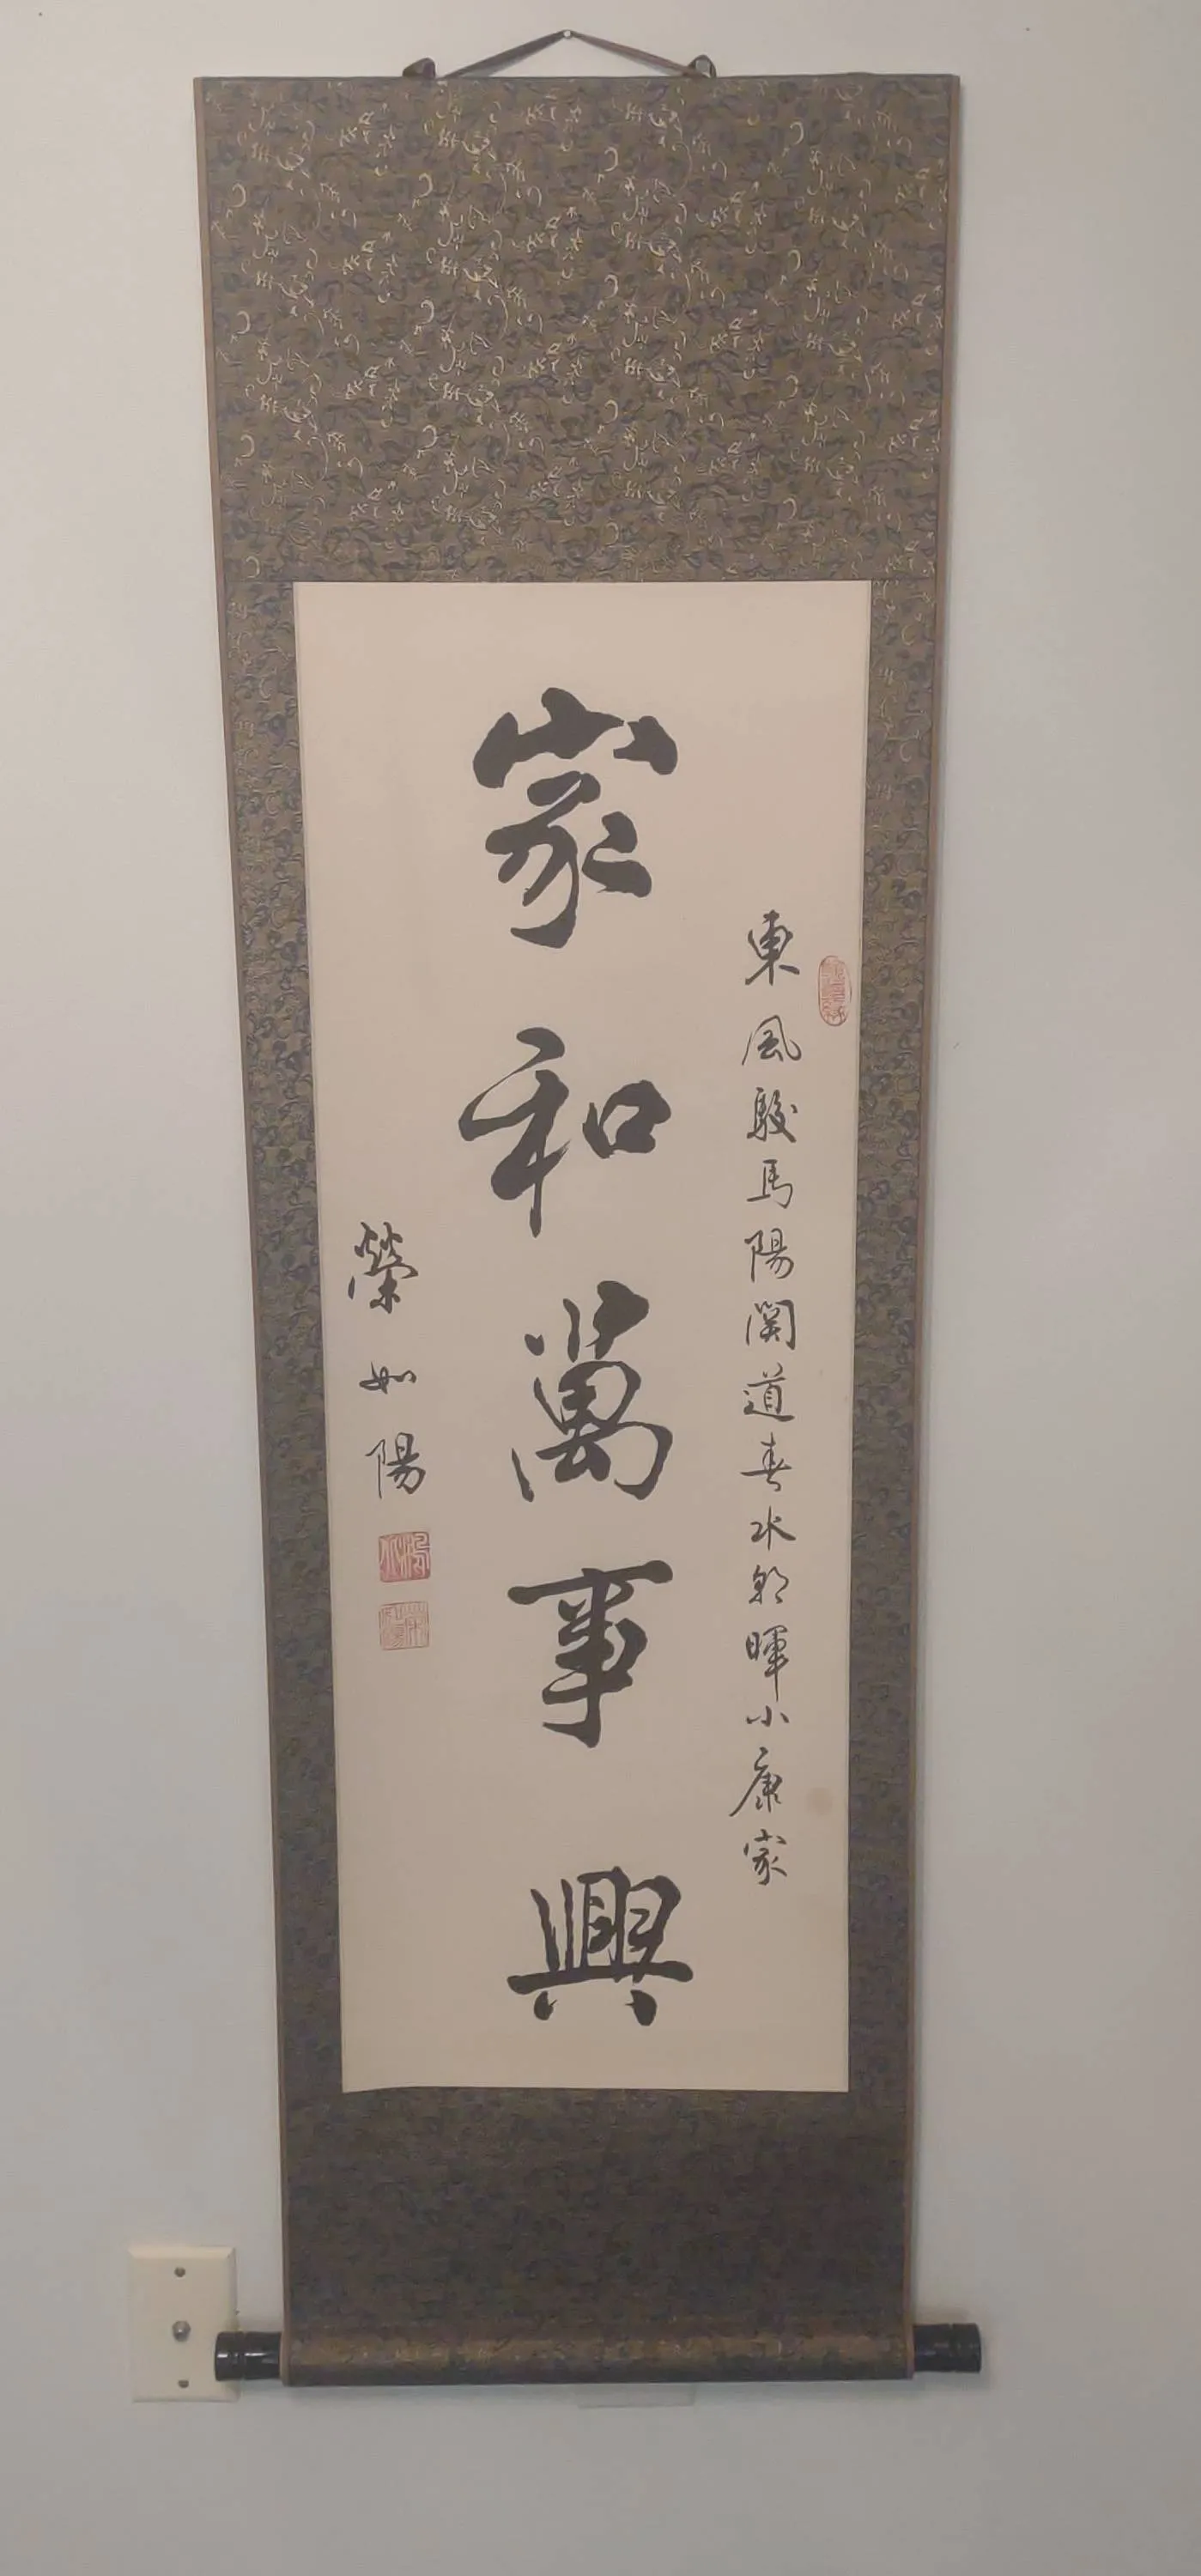 東風駿馬陽関道春水朝暉小康家
家和萬事興
榮如陽